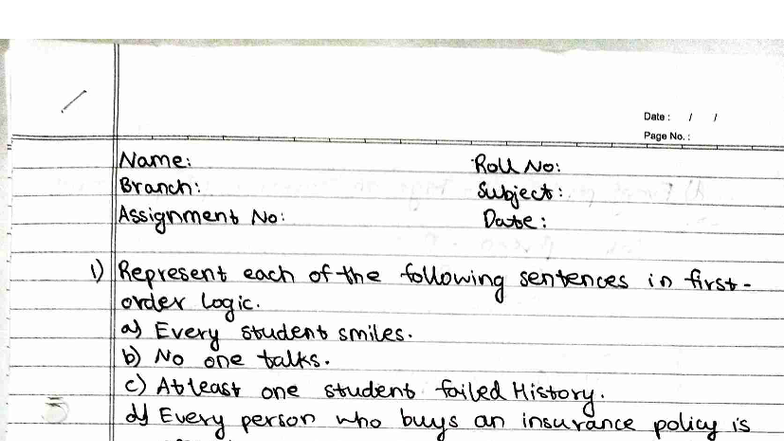 Date : / /
Page No. :
Name: Roll No:
Branch: Subject:
Assignment No: Date:
1) Represent each of the following sentences in first-
order logic.
a) Every student smiles.
b) No one talks.
c) Atleast one student failed History.
d) Every person who buys an insurance policy is